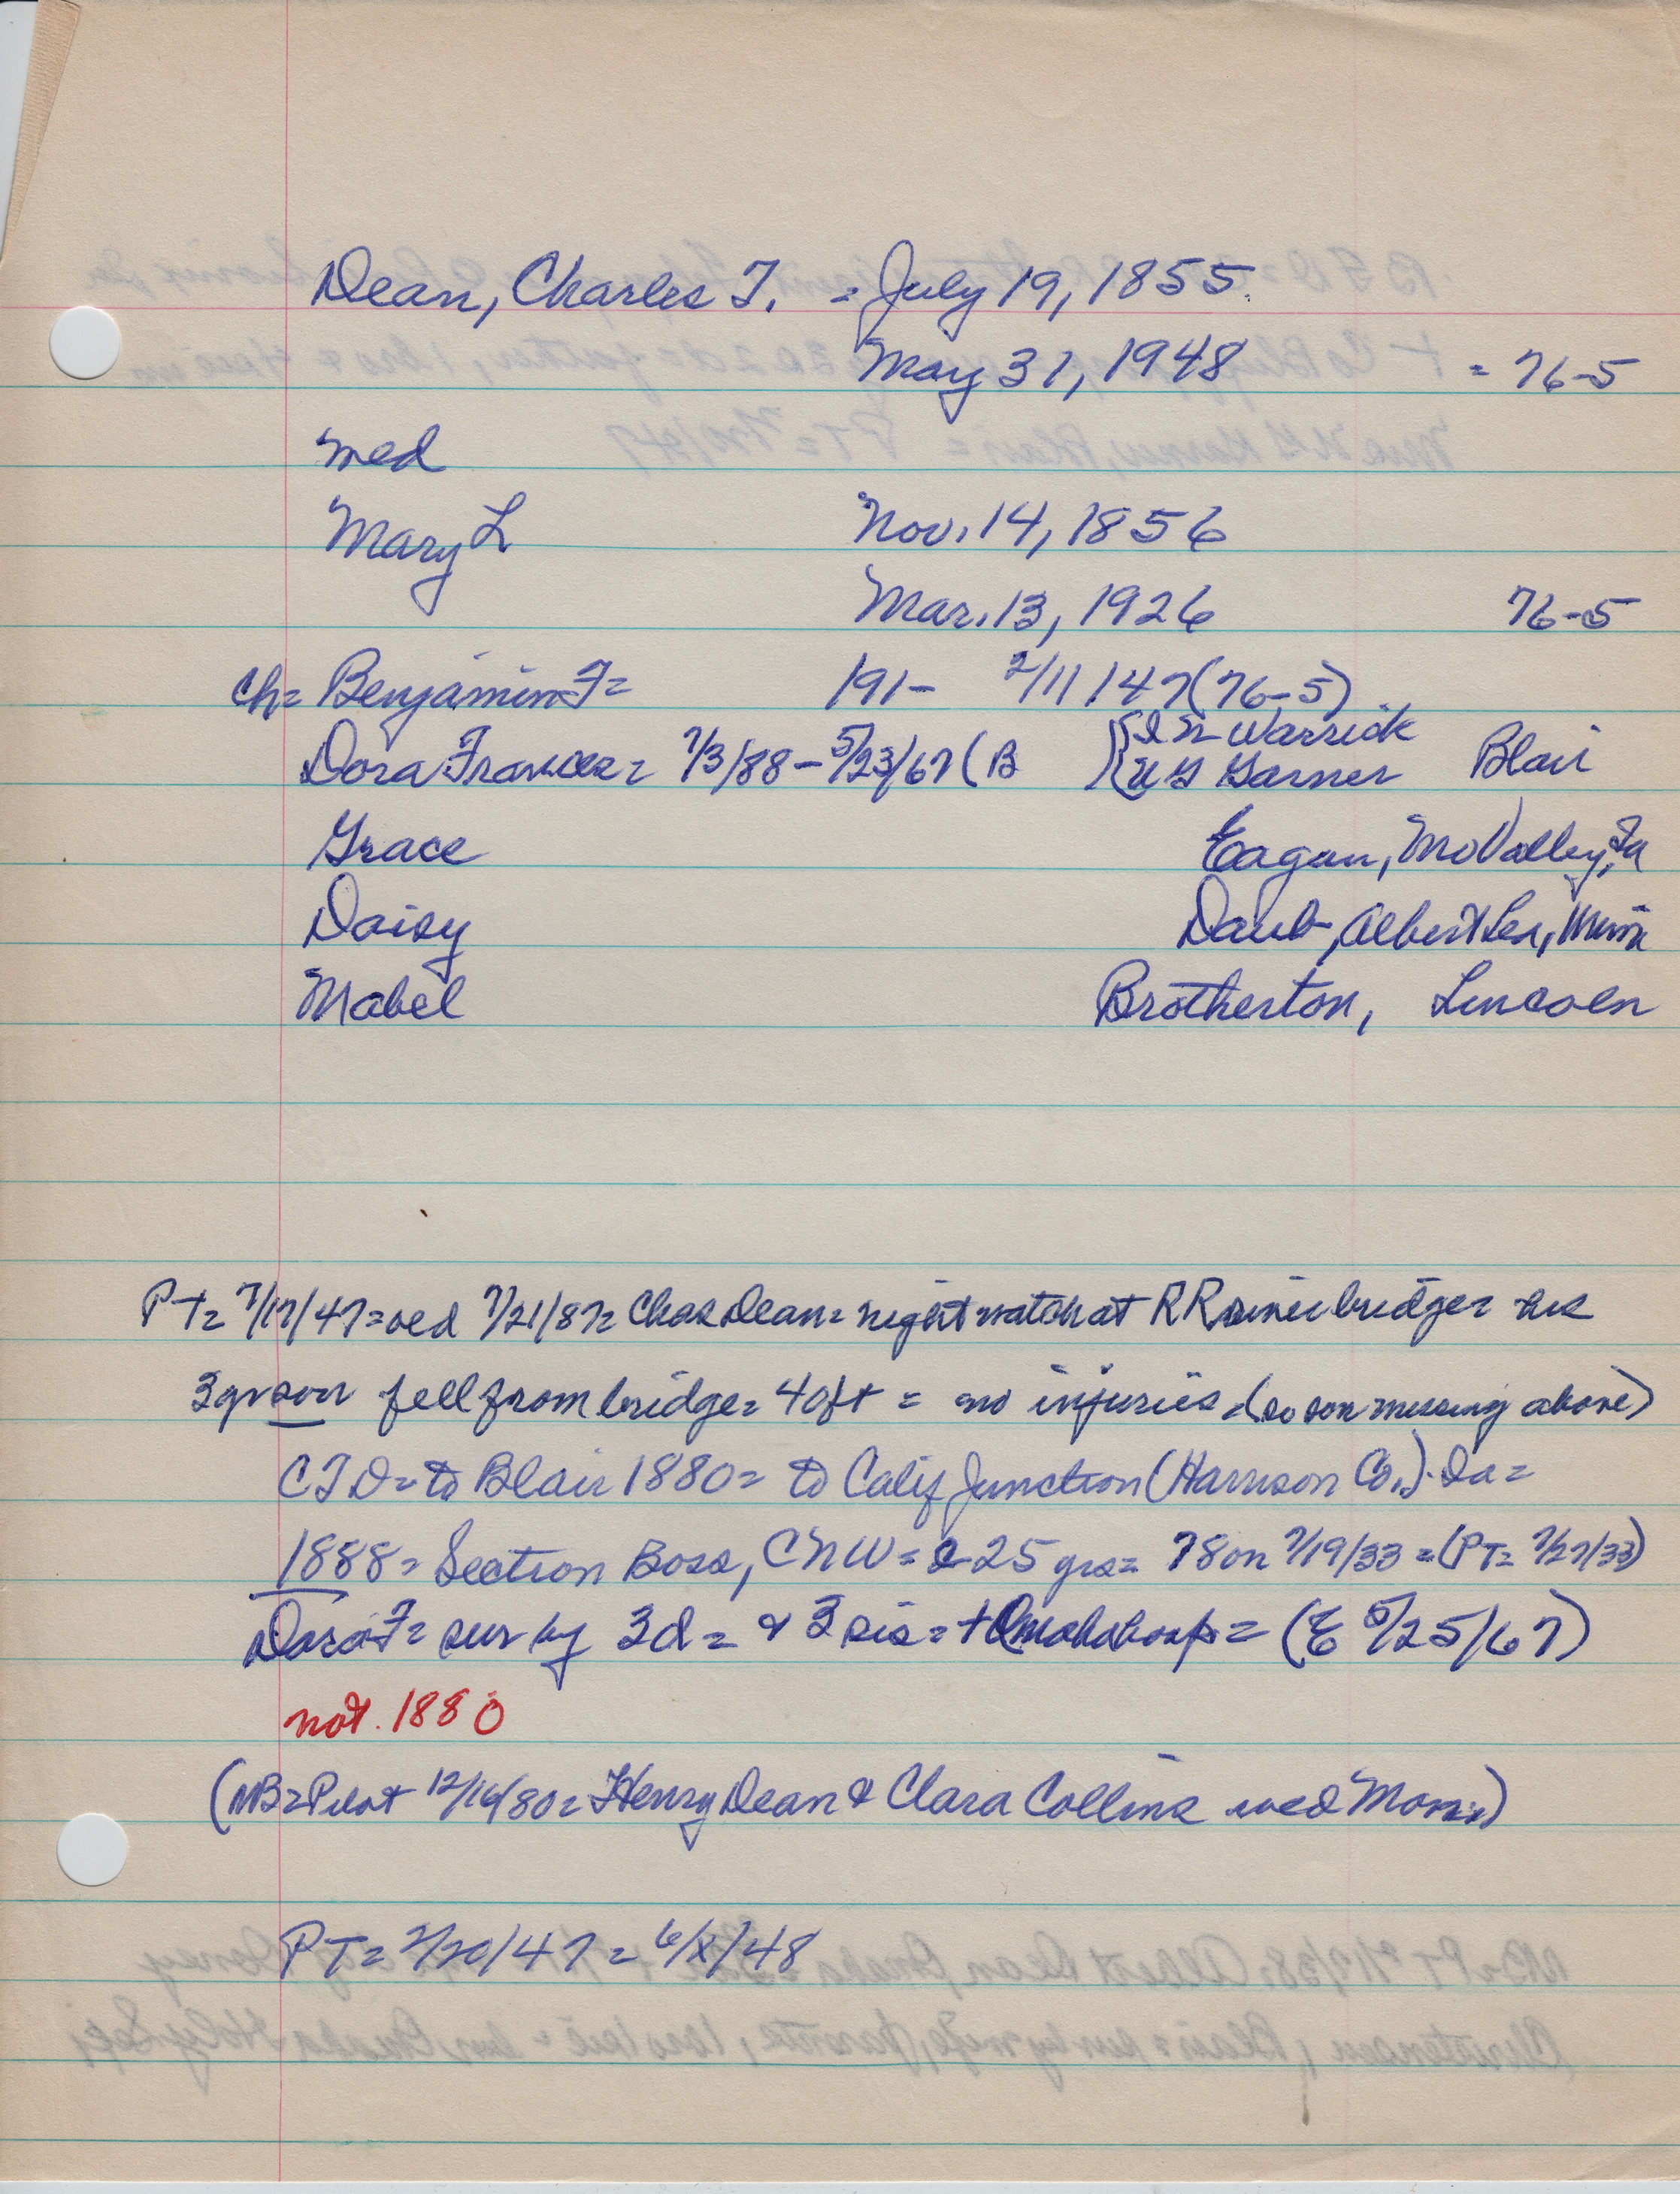 Dean, Charles T. = July 19, 1855.
May 31, 1948 = 76-5
med
Mary L Nov. 14, 1856
Mar. 13, 1926 76-5
Ch= Benjamin F= 191- 2/11/47 (76-5)
Dora Frances= 7/3/88 - 5/23/67 (B Warrick
Garner Blair
Grace Eagan, Mo Valley, Ia
Daisy Daub, Albert Lea, Minn
Mabel Brotherton, Lincoln
PT= 7/17/47 = 7/21/87= Chas Dean= night watch at RR river bridge= his
3 yr son fell from bridge= 40ft = no injuries. (so son missing above)
CTD= to Blair 1880= to Calif Junction (Harrison Co.). Ia=
1888= Section Boss, CNW= 25 yrs= 78 on 7/19/33 = (PT= 7/27/33)
Dora F= sur by 3d= & 3 sis= + Omaha hosp= (E 5/25/67)
not. 1880
(NB= Pilot 12/16/80= Henry Dean & Clara Collins wed Mon.)
PT= 2/20/47 = 6/x/48